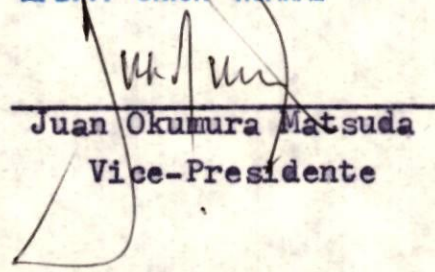 Juan Okumura Matsuda
Vice-Presidente